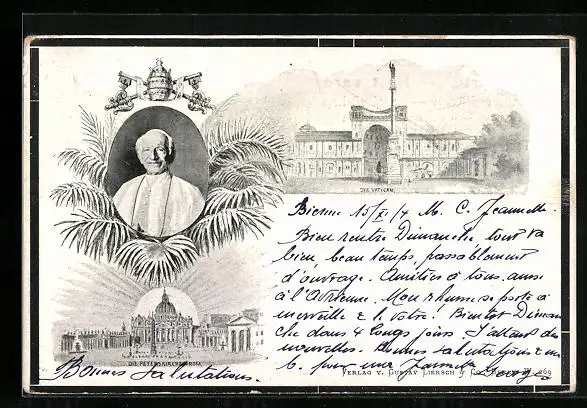 DER VATICAN.
Bienne 15/XI/4 M. C. Jeannette
Bien rentré Dimanche tout va
bien, beau temps, passablement
d'ouvrage. Amitiés à tous. aussi
à l'Ovrienne. Mon rhume se porte à
merveille & le votre! Bientôt Diman
che dans 4 longs jours J'attend des
nouvelles. Bonnes salutations & un
b. pour
DIE PETERSKIRCHE ROM.
Bonnes salutations.
VERLAG V. GUSTAV LIERSCH & CO.